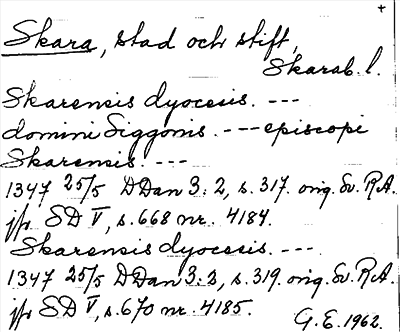 +
Skara, stad och stift,
Skarab. l.
Skarensis dyocesis. ---
domini Siggonis. --- episcopi
Skarensis. ---
1347 25/5 DDan 3:2, s. 317. orig. Sv. R.A.
jfr SD V, s. 668 nr. 4184.
Skarensis dyocesis. ---
1347 25/5 DDan 3:2, s. 319. orig. Sv. R.A.
jfr SD V, s. 670 nr. 4185.
G. E. 1962.